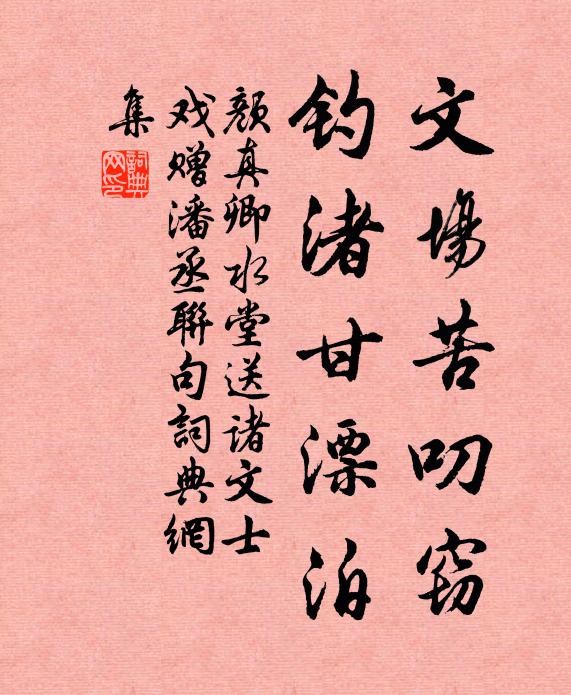 文場苦叨窃
钓渚甘漂泊
颜真卿水堂送诸文士
戏赠潘丞聯句詞典網
集
詞典網印